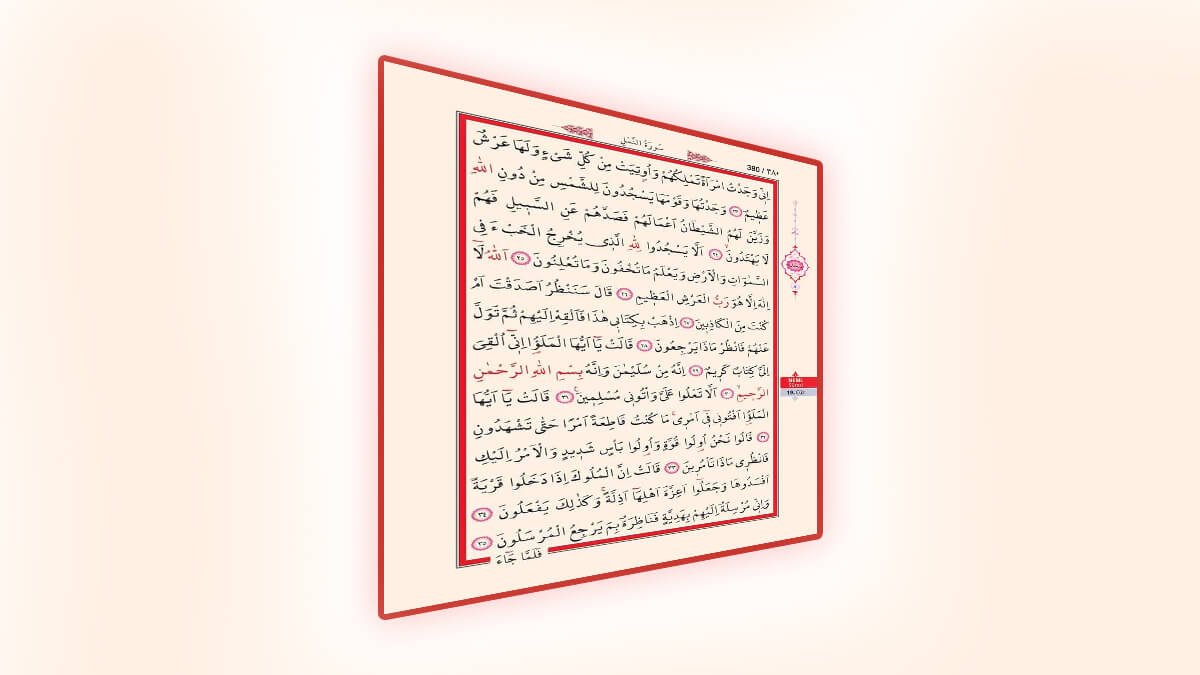 سُورَةُ النَّمْلِ
380 / ٣٨٠
اِنّٖي وَجَدْتُ امْرَاَةً تَمْلِكُهُمْ وَاُو۫تِيَتْ مِنْ كُلِّ شَيْءٍ وَلَهَا عَرْشٌ
عَظٖيمٌ ٢٣ وَجَدْتُهَا وَقَوْمَهَا يَسْجُدُونَ لِلشَّمْسِ مِنْ دُونِ اللّٰهِ
وَزَيَّنَ لَهُمُ الشَّيْطَانُ اَعْمَالَهُمْ فَصَدَّهُمْ عَنِ السَّبٖيلِ فَهُمْ
لَا يَهْتَدُونَۙ ٢٤ اَلَّا يَسْجُدُوا لِلّٰهِ الَّذٖي يُخْرِجُ الْخَبْءَ فِي
السَّمٰوَاتِ وَالْاَرْضِ وَيَعْلَمُ مَا تُخْفُونَ وَمَا تُعْلِنُونَ ٢٥ اَللّٰهُ لَٓا
اِلٰهَ اِلَّا هُوَ رَبُّ الْعَرْشِ الْعَظٖيمِ ٢٦ قَالَ سَنَنْظُرُ اَصَدَقْتَ اَمْ
كُنْتَ مِنَ الْكَاذِبٖينَ ٢٧ اِذْهَبْ بِكِتَابٖي هٰذَا فَاَلْقِهْ اِلَيْهِمْ ثُمَّ تَوَلَّ
عَنْهُمْ فَانْظُرْ مَاذَا يَرْجِعُونَ ٢٨ قَالَتْ يَٓا اَيُّهَا الْمَلَؤُ۬ا اِنّٖٓي اُلْقِيَ
اِلَيَّ كِتَابٌ كَرٖيمٌ ٢٩ اِنَّهُ مِنْ سُلَيْمٰنَ وَاِنَّهُ بِسْمِ اللّٰهِ الرَّحْمٰنِ
الرَّحٖيمِۙ ٣٠ اَلَّا تَعْلُوا عَلَيَّ وَأْتُونٖي مُسْلِمٖينَ۟ ٣١ قَالَتْ يَٓا اَيُّهَا
الْمَلَؤُ۬ا اَفْتُونٖي فٖٓي اَمْرٖيۚ مَا كُنْتُ قَاطِعَةً اَمْرًا حَتّٰى تَشْهَدُونِ
٣٢ قَالُوا نَحْنُ اُو۬لُوا قُوَّةٍ وَاُو۬لُوا بَأْسٍ شَدٖيدٍ وَالْاَمْرُ اِلَيْكِ
فَانْظُرٖي مَاذَا تَأْمُرٖينَ ٣٣ قَالَتْ اِنَّ الْمُلُوكَ اِذَا دَخَلُوا قَرْيَةً
اَفْسَدُوهَا وَجَعَلُٓوا اَعِزَّةَ اَهْلِهَٓا اَذِلَّةًۚ وَكَذٰلِكَ يَفْعَلُونَ ٣٤
وَاِنّٖي مُرْسِلَةٌ اِلَيْهِمْ بِهَدِيَّةٍ فَنَاظِرَةٌ بِمَ يَرْجِعُ الْمُرْسَلُونَ ٣٥
فَلَمَّا جَٓاءَ
NEML
Sûresi
19. Cüz